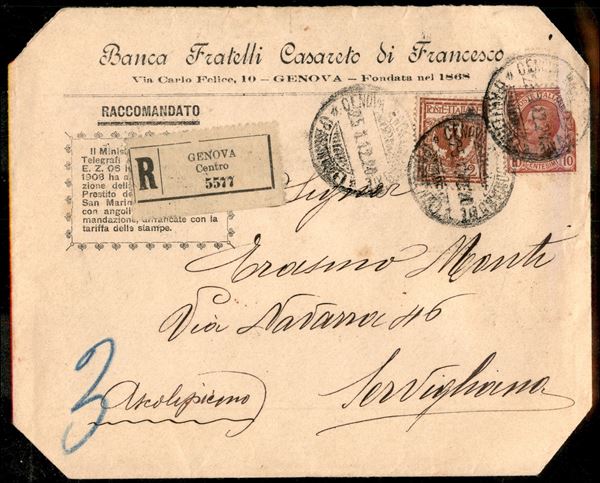 Banca Fratelli Casareto di Francesco
Via Carlo Felice, 10 – GENOVA – Fondata nel 1868
RACCOMANDATO
Il Minist
Telegrafi
E. Z. 06
1906 ha a
zione dell
Prestito de
San Marin
con angoli
mandazione, affrancate con la
tariffa delle stampe.
R
GENOVA
Centro
5577
GENOVA
POSTE ITALIANE
2
GENOVA
GENOVA
10 CENTESIMI 10
Signor
Erasmo Monti
Via Navarra 46
Servigliano
Ascolipiceno
3